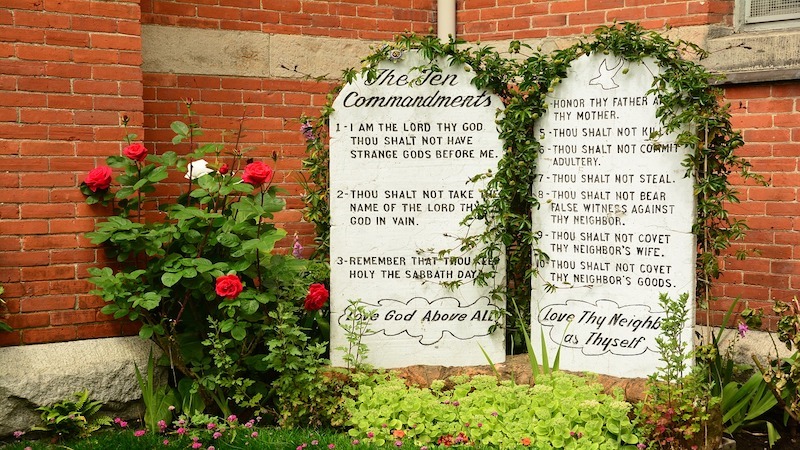 The Ten
Commandments
1 - I AM THE LORD THY GOD
THOU SHALT NOT HAVE
STRANGE GODS BEFORE ME.
2 - THOU SHALT NOT TAKE
NAME OF THE LORD THY
GOD IN VAIN.
3 - REMEMBER THAT THOU KEEP
HOLY THE SABBATH DAY.
Love God Above All
- HONOR THY FATHER
THY MOTHER.
5 - THOU SHALT NOT KILL
6 - THOU SHALT NOT COMMIT
ADULTERY.
7 - THOU SHALT NOT STEAL.
8 - THOU SHALT NOT BEAR
FALSE WITNESS AGAINST
THY NEIGHBOR.
9 - THOU SHALT NOT COVET
THY NEIGHBOR'S WIFE.
10 - THOU SHALT NOT COVET
THY NEIGHBOR'S GOODS.
Love Thy Neighbor
as Thyself